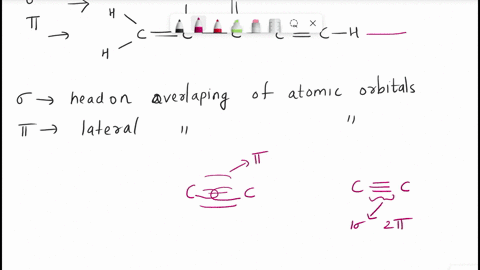 σ →
H
π →
C = C C C ≡ C - H
H
σ → head on overlaping of atomic orbitals
π → lateral " "
π
C C
C ≡ C
1σ 2π